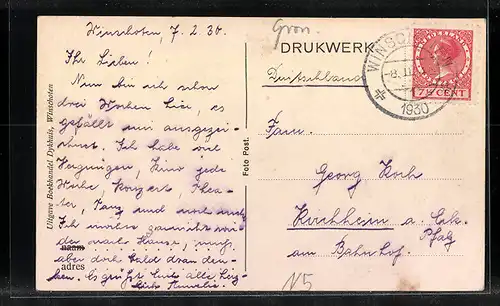 Winschoten, 7.2.30.
Ihr Lieben!
Nun bin ich schon
drei Wochen hier, es
gefällt mir ausgezei-
chnet. Ich habe viel
Vergnügen, Kino jede
Woche, Konzert, Thea-
ter, Tanz und noch mehr
Ich möchte garnicht wie-
der nach Hause, muß
aber doch bald dran den-
ken. Es grüßt Euch alle herz-
lich
naam
adres
Uitgave Boekhandel Dykhuis, Winschoten
Foto Post.
Gron.
DRUKWERK
Deutschland
WINSCHOTEN
1930
NEDERLAND
7½ CENT
Fam.
Georg Koch
Kirchheim a. Eck.
Pfalz
am Bahnhof.
N5